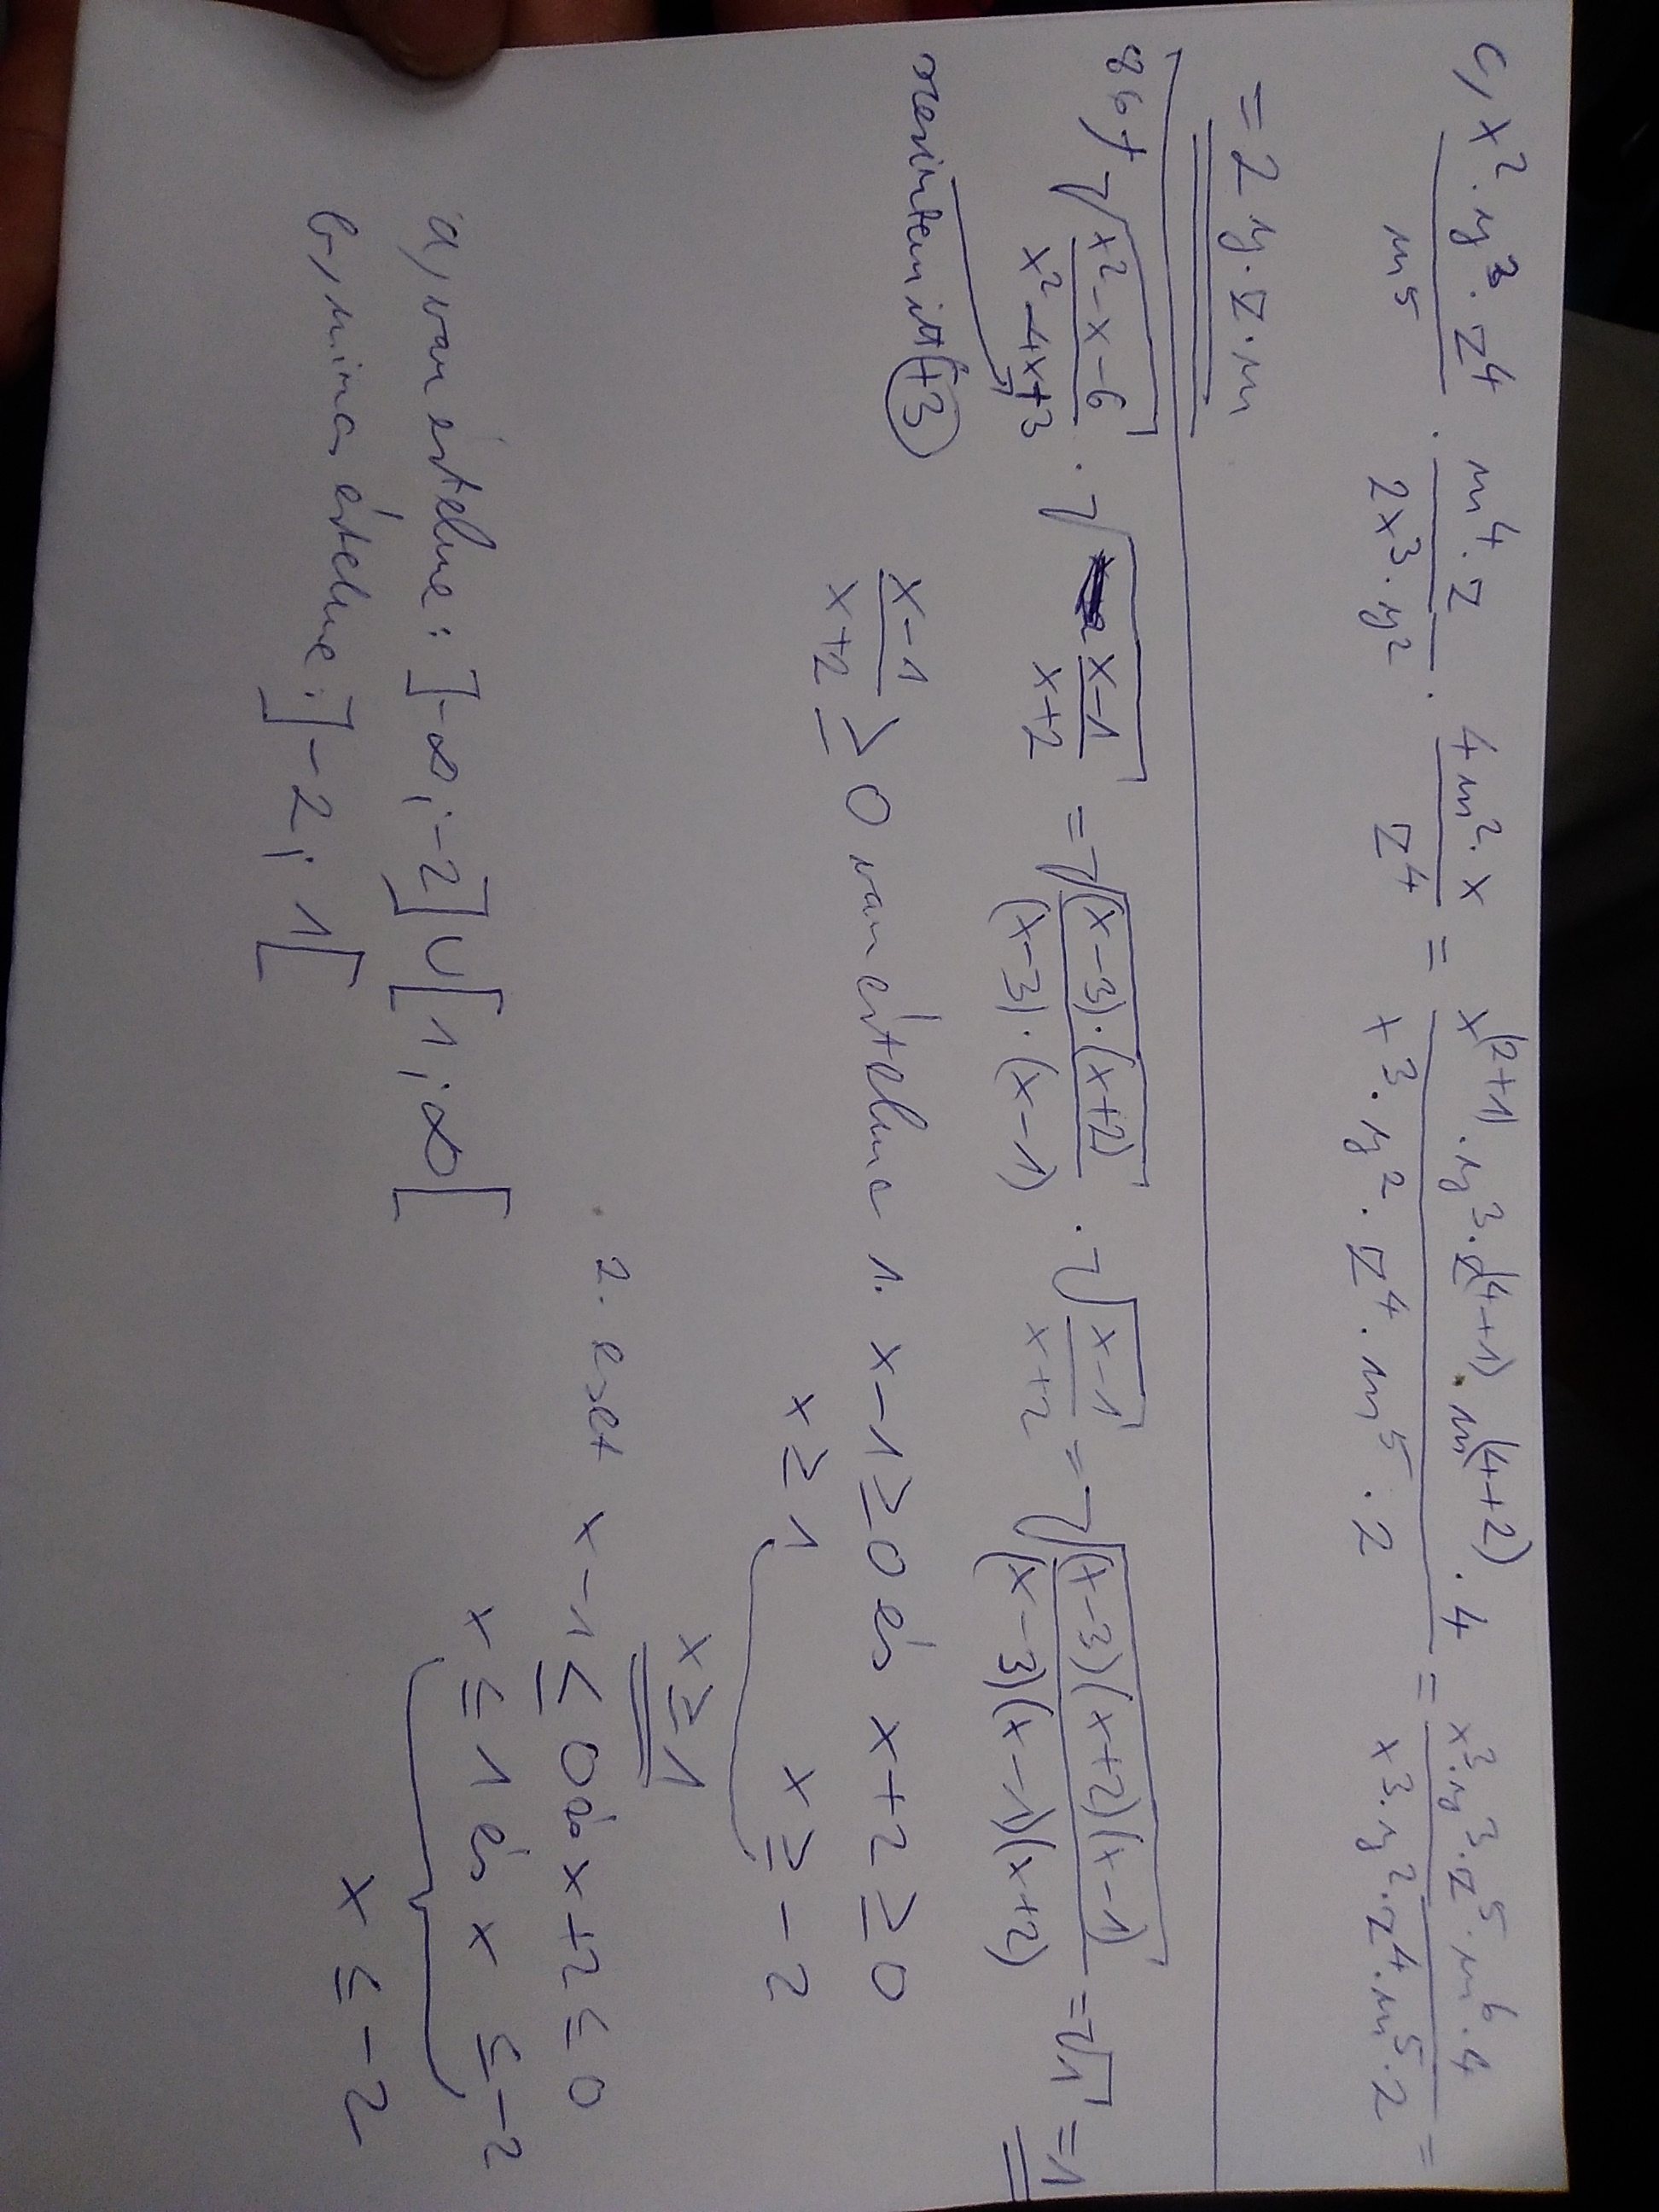 c, x²·y³·z⁴/m⁵ · m⁴·z/2x³·y² · 4m²·x/z⁴ = x⁽²⁺¹⁾·y³·z⁽⁴⁺¹⁾·m⁽⁴⁺²⁾·4/x³·y²·z⁴·m⁵·2 = x³·y³·z⁵·m⁶·4/x³·y²·z⁴·m⁵·2 =
= 2y·z·m
86, √(x²-x-6/x²-4x+3) · √(x-1/x+2) = √((x-3)·(x+2)/(x-3)·(x-1)) · √(x-1/x+2) = √((x-3)(x+2)(x-1)/(x-3)(x-1)(x+2)) = √1 = 1
szerintem itt +3
x-1/x+2 ≥ 0 van értelme 1. x-1≥0 és x+2≥0
x≥1 x≥-2
x≥1
2. eset x-1≤0 és x+2≤0
x≤1 és x≤-2
x≤-2
a, van értelme: ]-∞;-2]∪[1;∞[
b, nincs értelme: ]-2; 1[